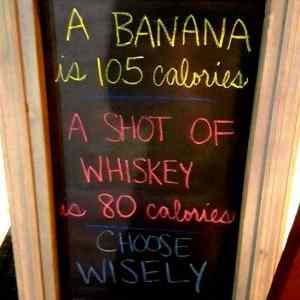 A BANANA
is 105 calories
A SHOT OF
WHISKEY
is 80 calories
CHOOSE
WISELY